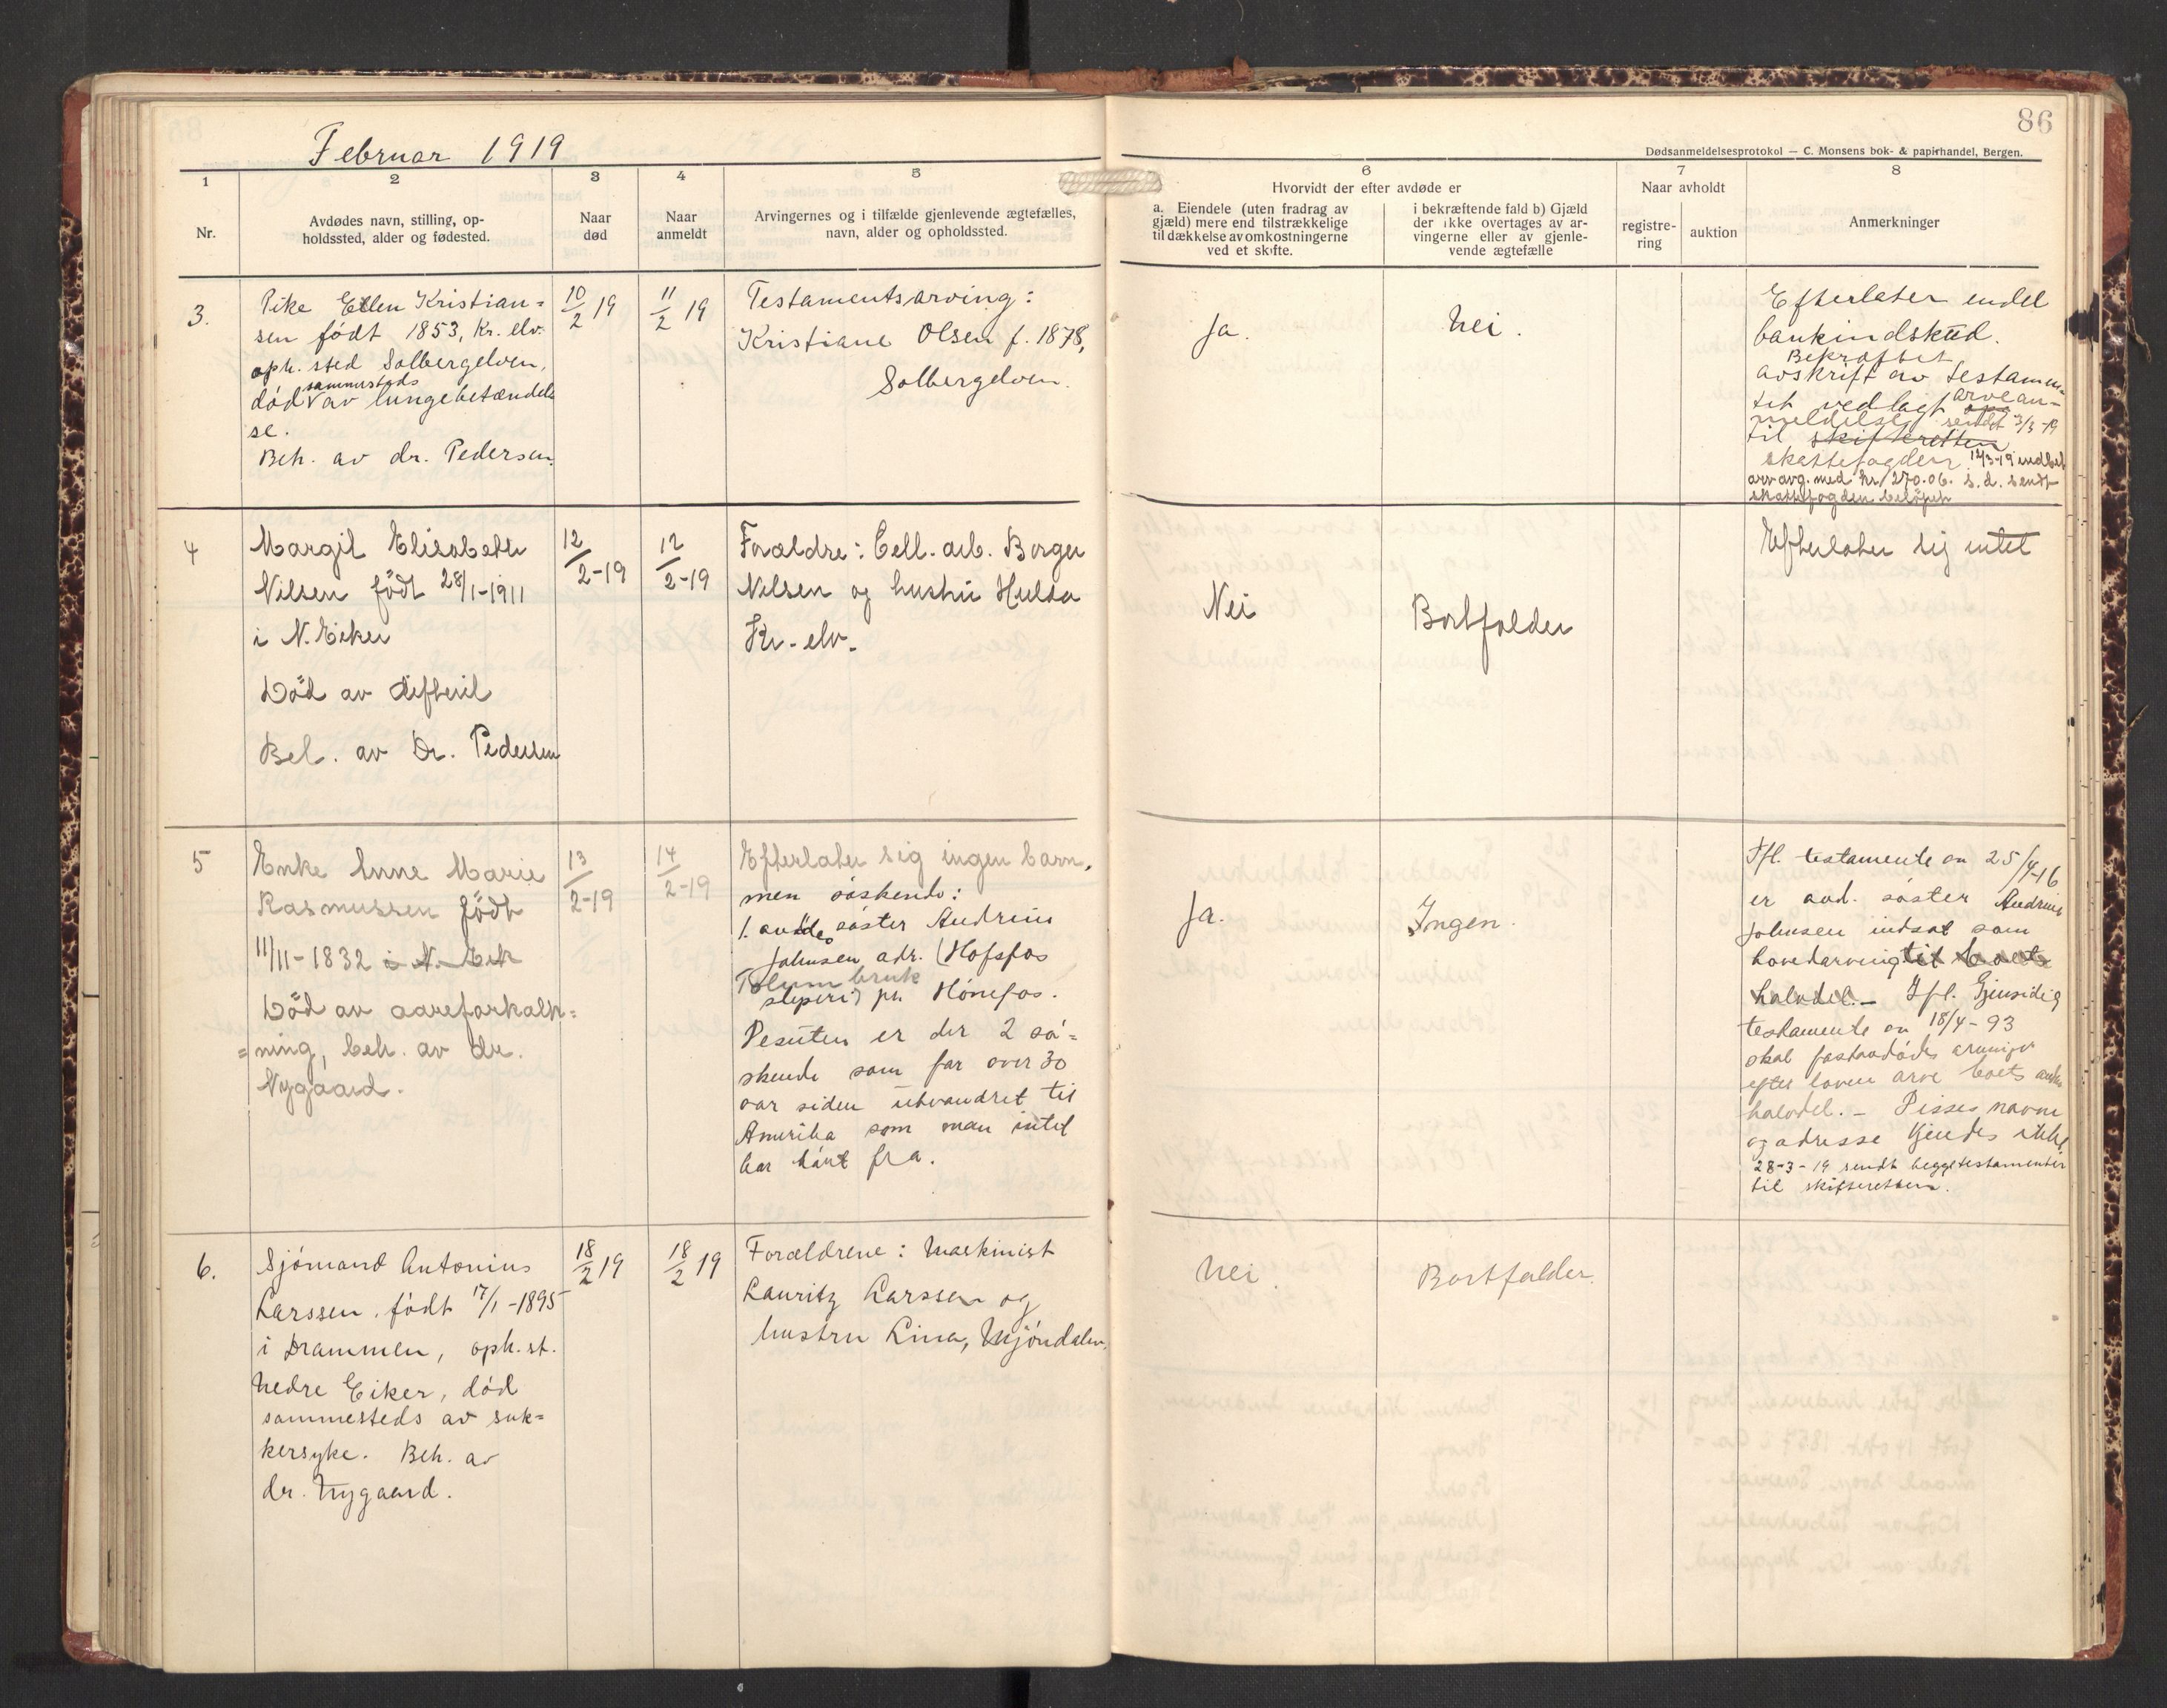 Februar 1919
86
Dødsanmeldelsesprotokol — C. Monsens bok- & papirhandel, Bergen.
1
2
3
4
5
6
7
8
Nr.
Avdødes navn, stilling, op-
holdssted, alder og fødested.
Naar
død
Naar
anmeldt
Arvingernes og i tilfælde gjenlevende ægtefælles,
navn, alder og opholdssted.
Hvorvidt der efter avdøde er
a. Eiendele (uten fradrag av
gjæld) mere end tilstrækkelige
til dækkelse av omkostningerne
ved et skifte.
i bekræftende fald b) Gjæld
der ikke overtages av ar-
vingerne eller av gjenle-
vende ægtefælle
Naar avholdt
registre-
ring
auktion
Anmerkninger
3.
Pike Ellen Kristian=
sen født 1853, Kr. elv.
oph. sted Solbergelven,
sammesteds
død av lungebetændel
se.
Beh. av dr. Pedersen.
10/2 19
11/2 19
Testamentsarving:
Kristiane Olsen f. 1878,
Solbergelven.
Ja.
Nei.
Efterlater endel
bankindskud.
Bekræftet
avskrift av testamen-
tet vedlagt arvean-
meldelse sendt 3/3-19
til skifteretten
skattefogden. 12/3-19 indbet
arv avg. med kr 270.06. s. d. sendt
skattefogden beløpet
4
Margit Elisabeth
Nilsen födt 28/1-1911
i N. Eiker
Död av difterit
Beh. av Dr. Pedersen
12/2-19
12/2-19
Forældre: Cell. arb. Borger
Nilsen og hustru Hulda
Kr. elv.
Nei
Bortfalder
Efterlater sig intet
5
Enke Anne Marie
Rasmussen födt
11/11-1832 i N. Eik
Död av aareforkalk=
=ning, beh. av dr.
Nygaard.
13/2-19
14/2-19
Efterlater sig ingen barn,
men søskende:
1. avdde søster Andrine
Johnsen adr. (Hofsfos
bruk
sliperi) pr. Hønefos.
Desuten er der 2 sø=
skende som for over 30
aar siden utvandret til
Amerika som man intet
har hørt fra.
Ja.
Ingen.
Ifl. testamente av 25/4-16
er avd. søster Andrine
Johnsen indsat som
hovedarving til boets
halvdel. — Ifl. Gjensidig
testamente av 18/4-93
skal førstavdødes arvinger
efter loven arve boets andre
halvdel. — Disses navne
og adresse kjendes ikke
28-3-19 sendt begge testamenter
til skifteretten.
6.
Sjømand Antonius
Larssen, født 17/1-1895
i Drammen, oph. st.
Nedre Eiker, død
sammesteds av suk=
kersyke. Beh. av
dr. Nygaard.
18/2 19
18/2 19
Forældrene: Maskinist
Lauritz Larssen og
hustru Lina, Mjøndalen.
Nei.
Bortfalder.